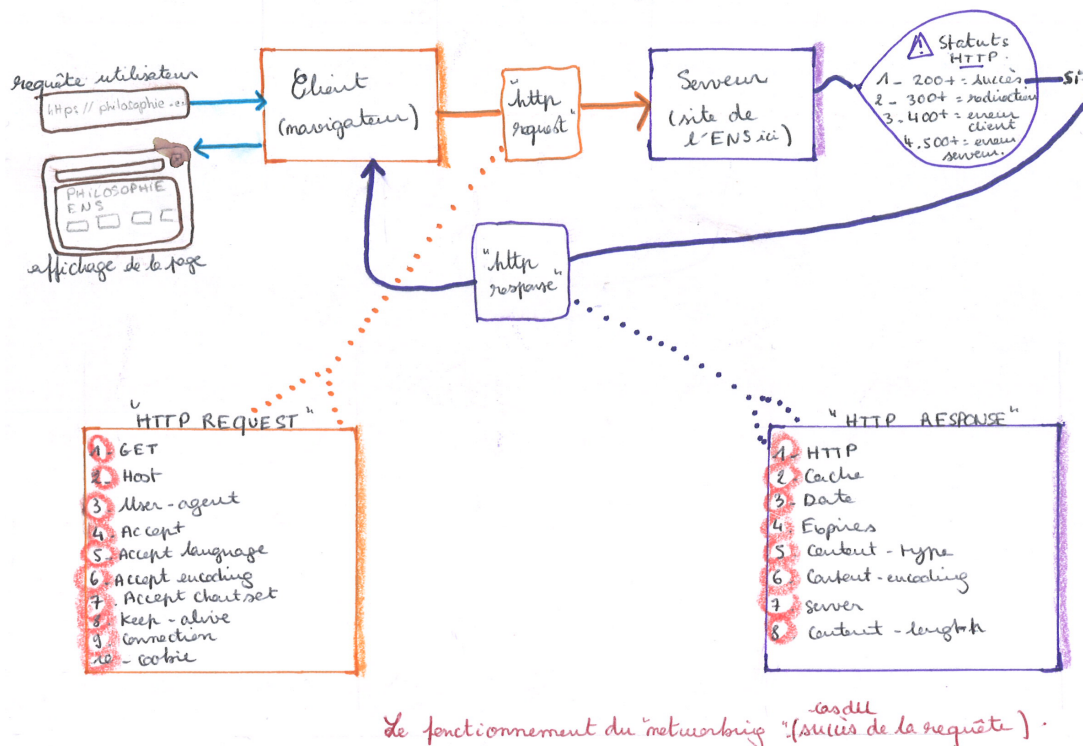 requête utilisateur
https:// philosophie.en
PHILOSOPHIE
ENS
affichage de la page
Client
(navigateur)
"http
request"
Serveur
(site de
l'ENS ici)
Statuts
HTTP
1 - 200+ = succès
2 - 300+ = redirection
3 - 400+ = erreur
client
4. 500+ = erreur
serveur.
si
"http
response"
"HTTP REQUEST"
1 - GET
2 - Host
3. User-agent
4. Accept
5. Accept language
6. Accept encoding
7. Accept chartset
8. Keep-alive
9. Connection
10 - cookie
"HTTP RESPONSE"
1 - HTTP
2 - Cache
3 - Date
4 Expires
5 Content-type
6 Content-encoding
7 Server
8 Content-length
cas del
Le fonctionnement du "networking" (succès de la requête).